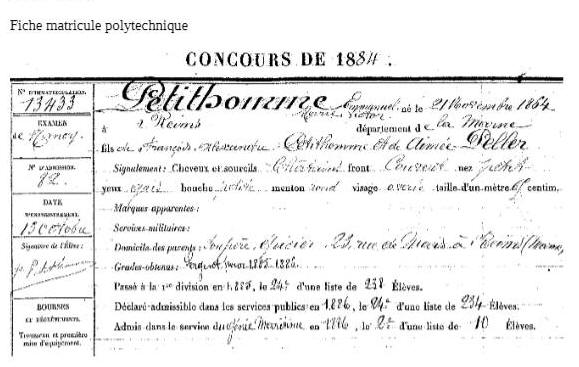 Fiche matricule polytechnique
CONCOURS DE 1884.
N° D'IMMATRICULATION.
13433
EXAMEN
de Nancy
N° D'ADMISSION.
82.
DATE
D'ENREGISTREMENT.
13 octobre
Signature de l'Élève:
BOURSES
ET
Trousseau et première
mise d'équipement.
Petithomme Emmanuel né le 21 Novembre 1864
Marie Victor
à Reims département de la Marne
fils de François Alexandre Petithomme et de Aimée Peller
Signalement: Cheveux et sourcils châtains front Couvert nez petit
yeux gris bouche petite menton rond visage ovale taille d'un mètre centim.
Marques apparentes:
Services militaires:
Domicile des parents: 23, rue de Mars à Reims (Marne)
Grades obtenus: 1885-1886.
Passé à la 1re division en 1885, le 24e d'une liste de 238 Élèves.
Déclaré admissible dans les services publics en 1886, le 24e d'une liste de 234 Élèves.
Admis dans le service du Génie Maritime en 1886, le 2e d'une liste de 10 Élèves.